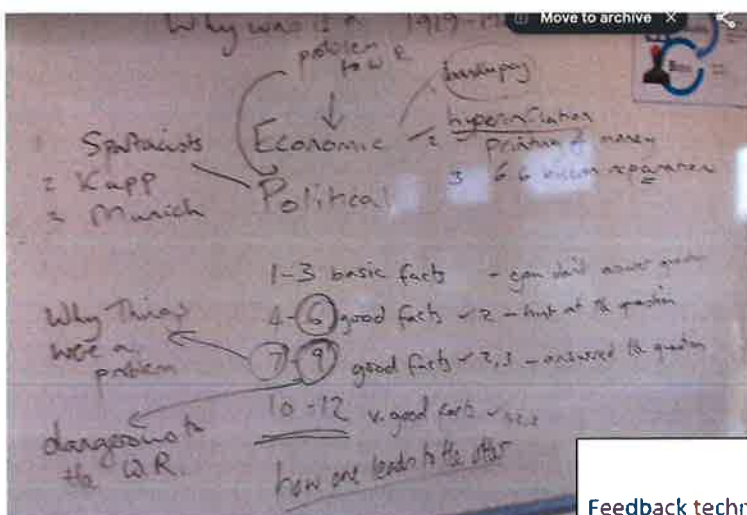 Move to archive
Why was it a 1919-19
problem
to W R
bankruptcy
Economic
2 hyperinflation
- printing of money
3 6.6 billion reparation
1 Spartacists
2 Kapp
3 Munich
Political
1-3 basic facts - you don't answer question
4-6 good facts 2 - hint at the question
7-9 good facts 2,3 - answered the question
10-12 v. good facts
how one leads to the other
Why Things
were a
problem
dangerous to
the W.R.
Feedback techn